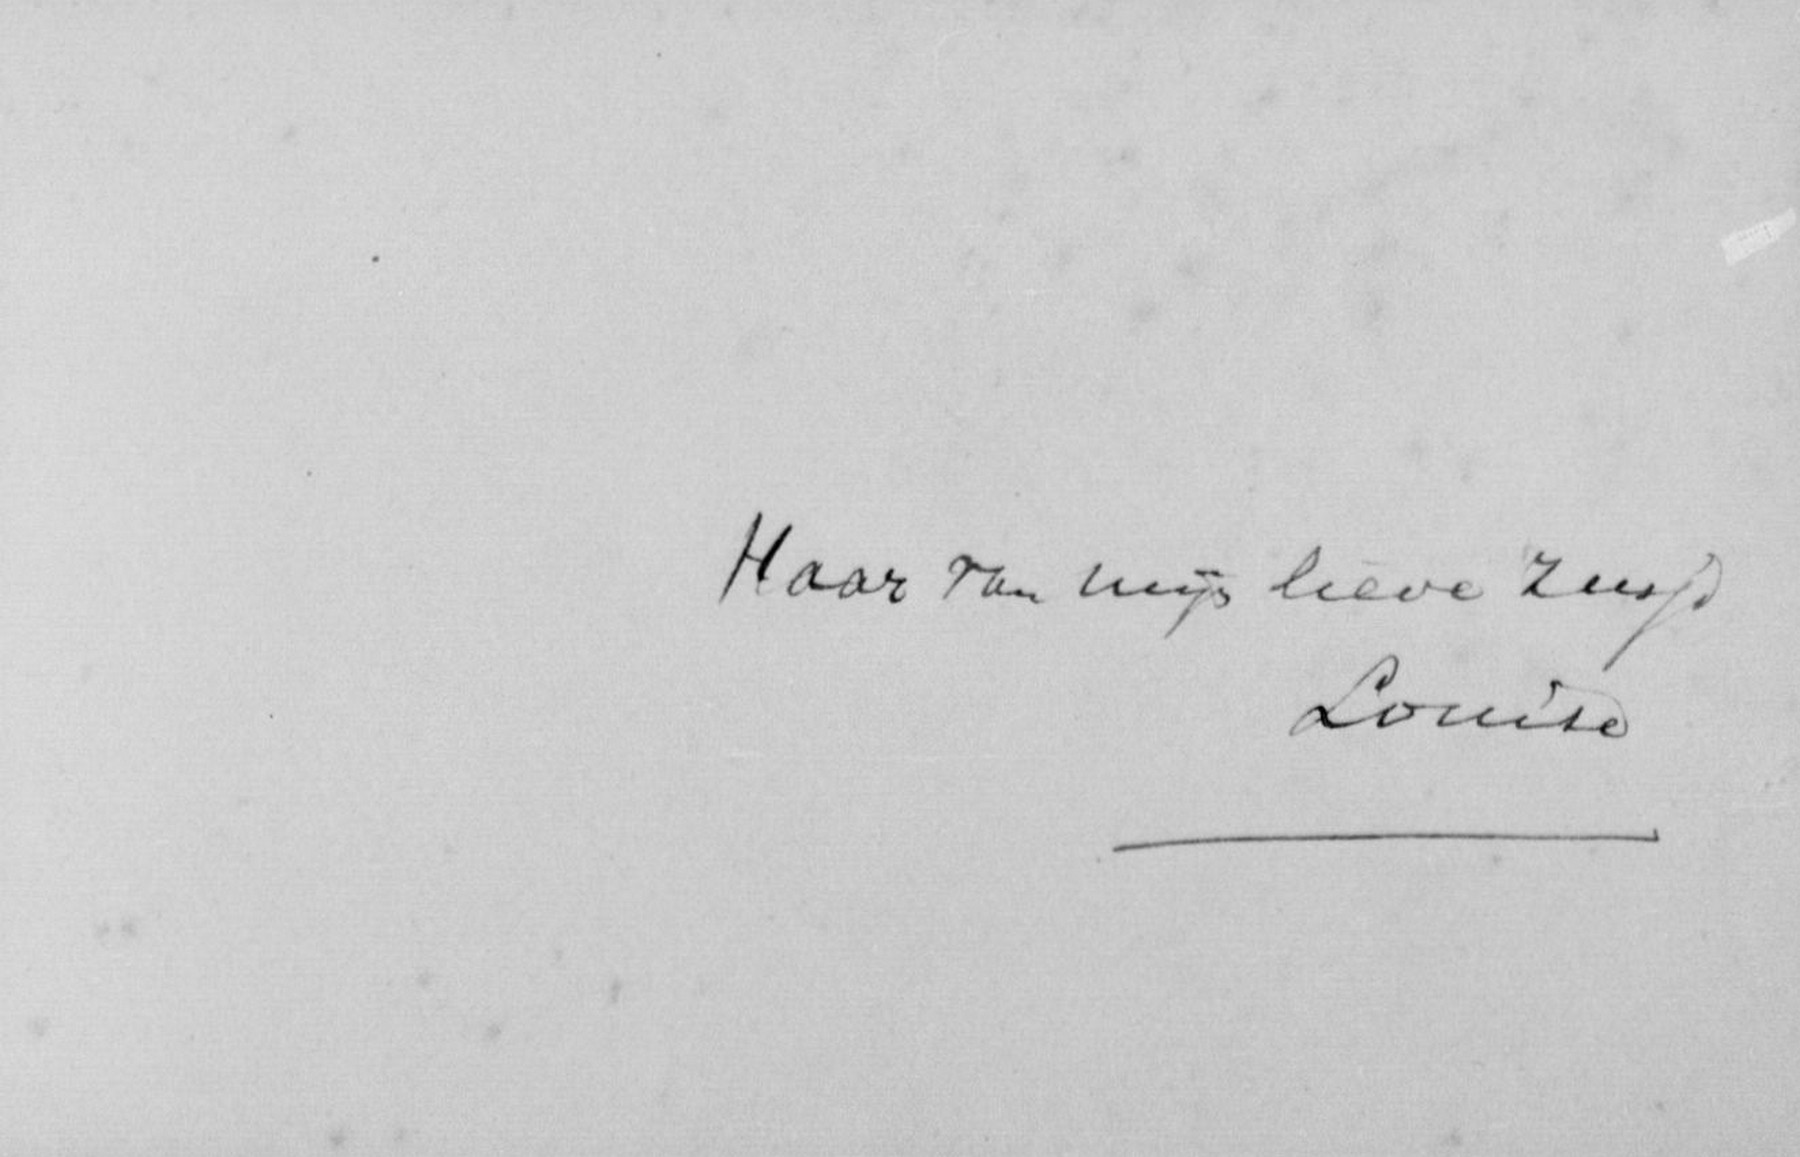 Haar van mijn lieve zusje
Louise